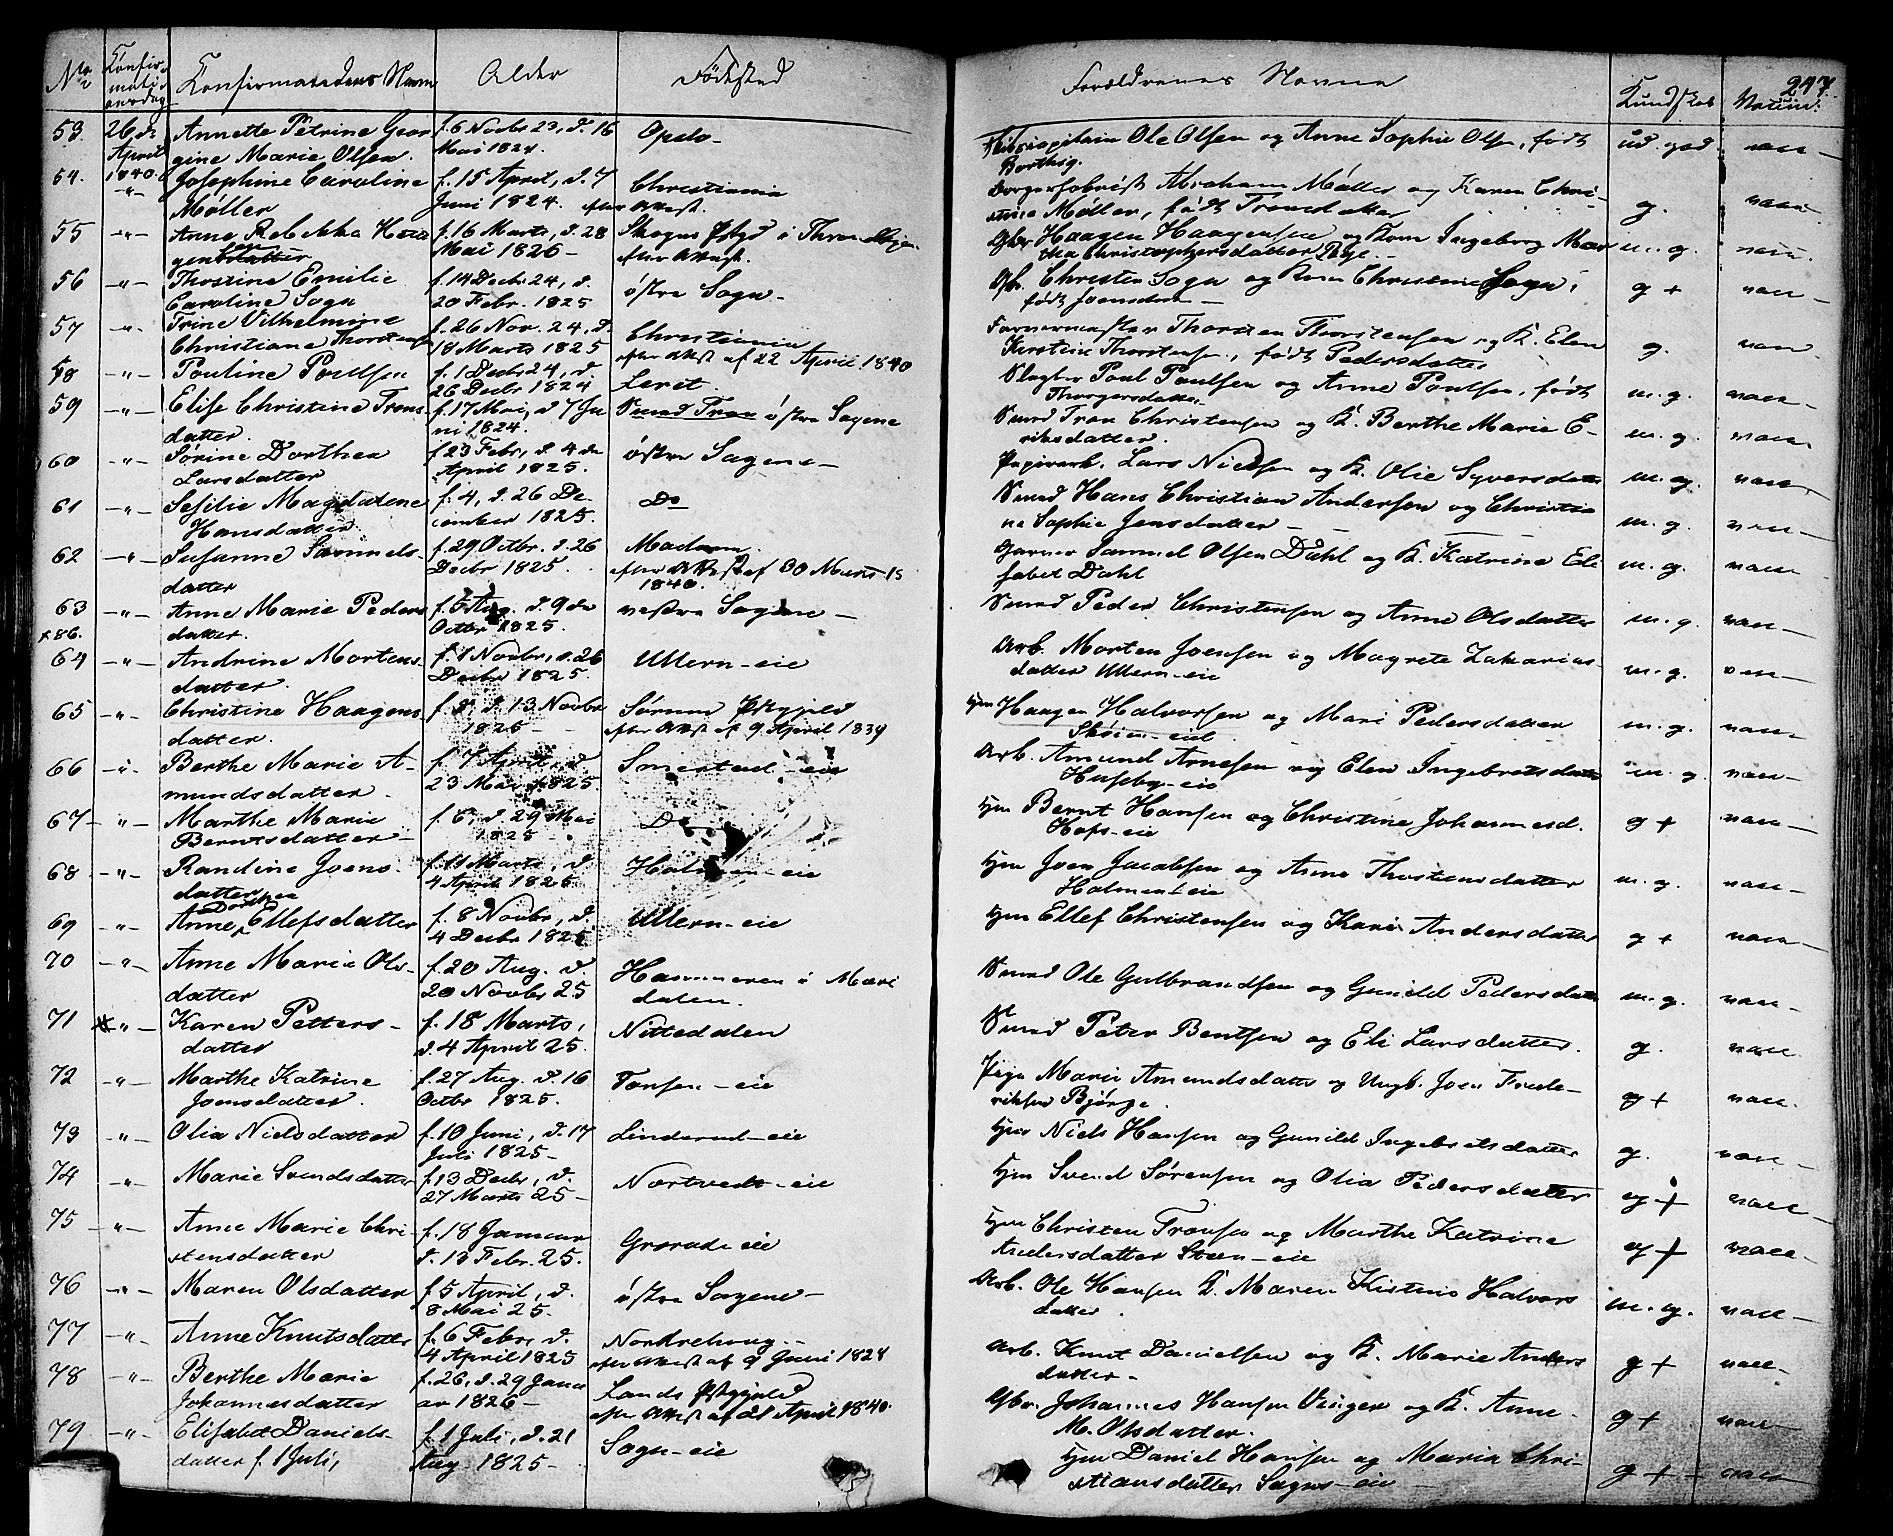 No
Konfir-
mati-
onsdag
Konfirmatendens Navn
Alder
Födested
Forældrenes Navne
Kundskab
247.
Vaccin.
53.
26de April 1840.
Annette Petrine Geor
gine Marie Olsen.
f. 6 Novbr 23, d. 16
Mai 1824.
Opslo -
Ole Olsen og Anne Sophie Olsen, født
ud. god
vacc -
54.
-"-
Josephine Caroline
Møller
f. 15 April, d. 7
Juni 1824.
Christiania
efter Attest.
Abraham Møller og Karen Chri-
stine Møller, født
g.
vacc -
55
-"-
Anne Rebekka Haa
gensdatter
f. 16 Marts, d. 28
Mai 1826 -
Skogns Pgjd i
efter Attest.
Haagen Haagensen og Kone Ingeborg Mar
tha Christophersdatter
m. g.
vacc.
56
-"-
Thostine Emilie
Caroline Sogn
f. 14 Decbr 24, d.
20 Febr. 1825
östre Sogn -
Gb. Christen Sogn og Kone Christine Sogn,
født Joensdatter -
g +
vacc -
57
-"-
Trine Vilhelmine
Christiane Thorstensen
f. 26 Nov. 24, d.
18 Marts 1825
Christiania
efter Attest af 22 April 1840
Thorsten Thorstensen og K. Elen
Kirstine Thorstensen, født Pedersdatter
g.
vacc -
58
-"-
Pouline Poulsen
f. 1 Decbr 24, d
26 Decbr 1824
Slagter Poul Poulsen og Anne Poulsen, født
Thorgersdatter
m. g.
vacc -
59
-"-
Elise Christine Trons
datter.
f. 17 Mai, d 7 Ju
ni 1824.
Smed Tron östre Sagene
Smed Tron Christensen og K. Berthe Marie E-
riksdatter.
m. g.
vacc -
60
-"-
Sørine Dorthea
Larsdatter
f. 23 Febr, d. 4 de
April 1825.
östre Sagene -
Papirarb. Lars Nielsen og K. Olie Syversdatter
m. g.
vacc -
61
-"-
Sesilie Magdalene
Hansdatter
f. 4, d. 26 De-
cember 1825.
Do
Smed Hans Christian Andersen og Christia
ne Sophie Jensdatter -
m. g.
vacc -
62
-"-
Susanne Samuels-
datter
f. 29 Octbr. d. 26
Decbr 1825.
efter Attest af 30 Marts
1840.
Garver Samuel Olsen Dahl og K. Katrine Eli
sabet Dahl
m. g.
vacc -
63
+86.
-"-
Anne Marie Peders
datter.
f. 5 Aug. d. 9 de
Octbr 1825.
vestre Sagene -
Smed Peder Christensen og Anne Olsdatter
m. g.
vacc -
64
-"-
Andrine Mortens-
datter.
f. 1 Novbr, d. 26
Decbr 1825.
Ullern-eie
Arb. Morten Joensen og Magrete Zakarias-
datter Ullern-eie
m. g.
vacc -
65
-"-
Christine Haagens
datter.
f. 8, d. 13 Novbr
1825 -
Sørum Pgjeld
efter Attest af 9 April 1839
Hm Haagen Halvorsen og Mari Pedersdatter
Skøien-eie
m. g.
vacc -
66
-"-
Berthe Marie A-
mundsdatter.
f. 7 April, d.
23 Mai 1825.
Smestad-eie
Arb. Amund Arnesen og Elen Ingebretsdatter
Huseby-eie
m. g.
vacc -
67
-"-
Marthe Marie
Berntsdatter
f. 6, d. 29 Mai
1825
Do
Hm Bernt Hansen og Christine Johannesd.
Hofs-eie
g +
vacc -
68
-"-
Randine Joens-
datter
f. 11 Marts, d.
4 April 1825.
Holmen-eie
Hm Joen Jacobsen og Anne Thostensdatter
Holmen-eie
m. g.
vacc -
69
-"-
Anne Dorthea Ellefsdatter
f. 8 Novbr, d.
4 Decbr 1825
Ullern-eie
Hm Ellef Christensen og Kari Andersdatter
g +
vacc -
70
-"-
Anne Marie Ols-
datter
f. 20 Aug. d.
20 Novbr 25
Hammeren i Mari
dalen.
Smed Ole Gulbrandsen og Gunild Pedersdatter
m. g.
vacc -
71
-"-
Karen Petters-
datter
f. 18 Marts,
d. 4 April 25.
Nittedalen
Smed Peter Bentsen og Eli Larsdatter.
g.
vacc.
72
-"-
Marthe Katrine
Joensdatter.
f. 27 Aug. d. 16
Octbr 1825.
Tonsen-eie
Pige Marie Amundsdatter og Ungk. Joen Frede-
riksen Bjørge.
g +
vacc.
73
-"-
Olia Nielsdatter
f. 10 Juni, d. 17
Juli 1825 -
Linderud-eie
Hm Niels Hansen og Gunild Ingebretsdatter
g.
vacc -
74
-"-
Marie Svendsdatter
f. 13 Decbr, d.
27 Marts 25 -
Nortvedt-eie
Hm Svend Sørensen og Olia Pedersdatter
g +
vacc -
75
-"-
Anne Marie Chri-
stensdatter
f. 18 Januar
d. 13 Febr. 25.
Grorud-eie
Hm Christen Tronsen og Marthe Katrine
Andersdatter Steen-eie
g +
vacc -
76
-"-
Maren Olsdatter
f. 5 April, d.
8 Mai 25.
östre Sagene -
Arb. Ole Hansen K. Maren Kistine Halvors
datter.
m. g.
vacc -
77
-"-
Anne Knutsdatter
f. 6 Febr, d.
4 April 1825
Nordrehoug -
efter Attest af 9 Juni 1824
Arb. Knut Danielsen og K. Marie Anders
datter -
g +
vacc -
78
-"-
Berthe Marie
Johannesdatter
f. 26, d. 29 Janu
ar 1826 -
Lands Pgjeld
efter Attest af 21 April 1840.
Gbr. Johannes Hansen Vinger og K. Anne
M. Olsdatter.
g +
vacc -
79
-"-
Elisabet Daniels-
datter f. 1 Juli,
f. 1 Juli, d. 21
Aug. 1825 -
Sogn-eie
Hm Daniel Hansen og Maria Chri-
stiansdatter Sogns-eie -
g +
vacc